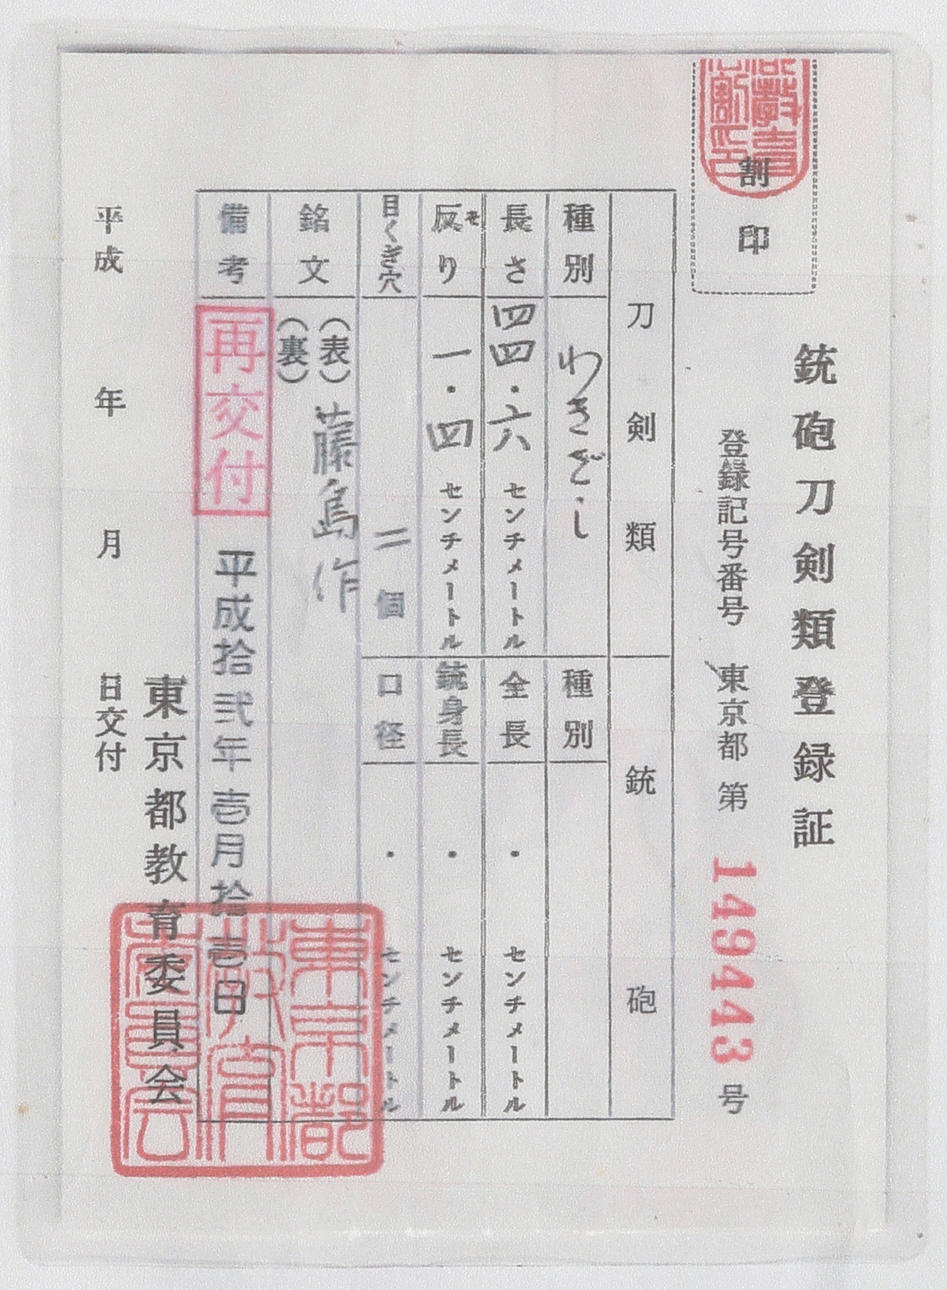 割印
銃砲刀剣類登録証
登録記号番号 東京都 第 149443 号
刀剣類
銃砲
種別 わきざし
種別
長さ 四四・六 センチメートル
全長 ・ センチメートル
反り そ 一・四 センチメートル
銃身長 ・ センチメートル
目くぎ穴 二 個
口径 ・ センチメートル
銘文 (表) 藤島作
(裏)
備考 再交付 平成拾弐年壱月拾壱日
東京都教育委員会
平成 年 月 日交付
東京都教育委員会